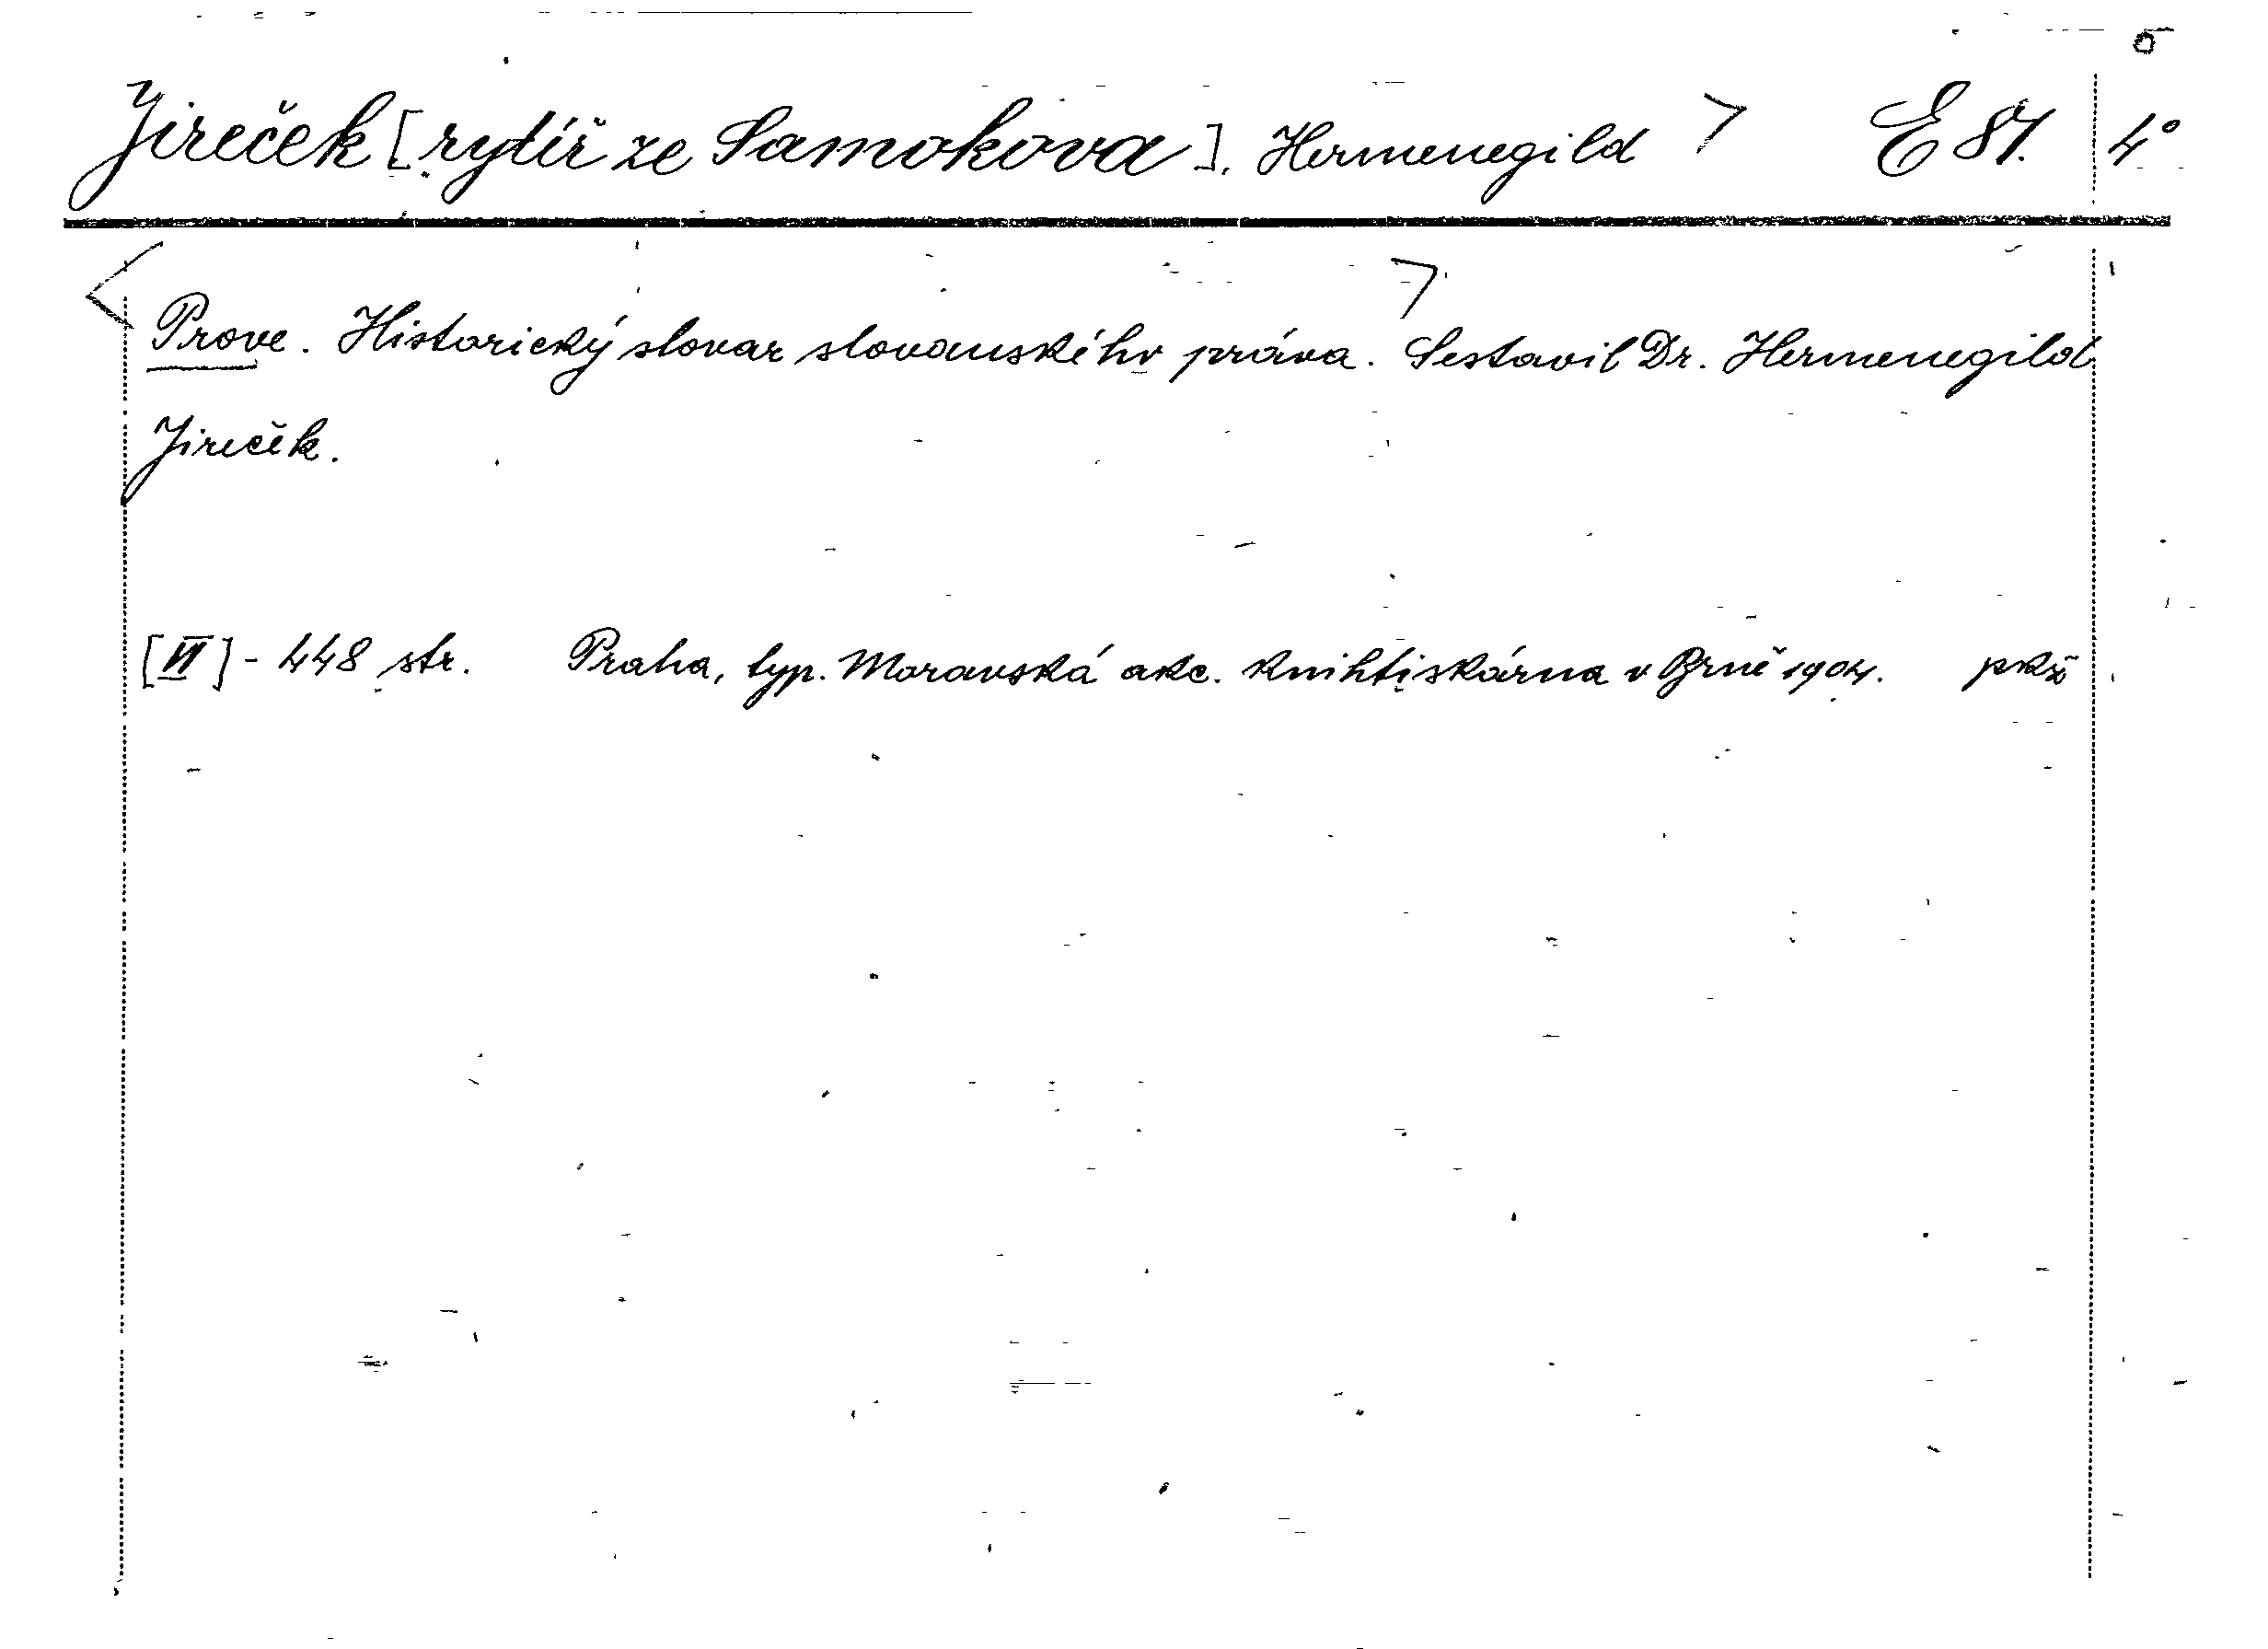 Jireček [rytíř ze Samokova], Hermenegild > E 87. 4°
< Prove. Historický slovar slovanského práva. > Sestavil Dr. Hermenegild
Jireček.
[VI] - 448 str. Praha, typ. Moravská akc. knihtiskárna v Brně 1904. pkž